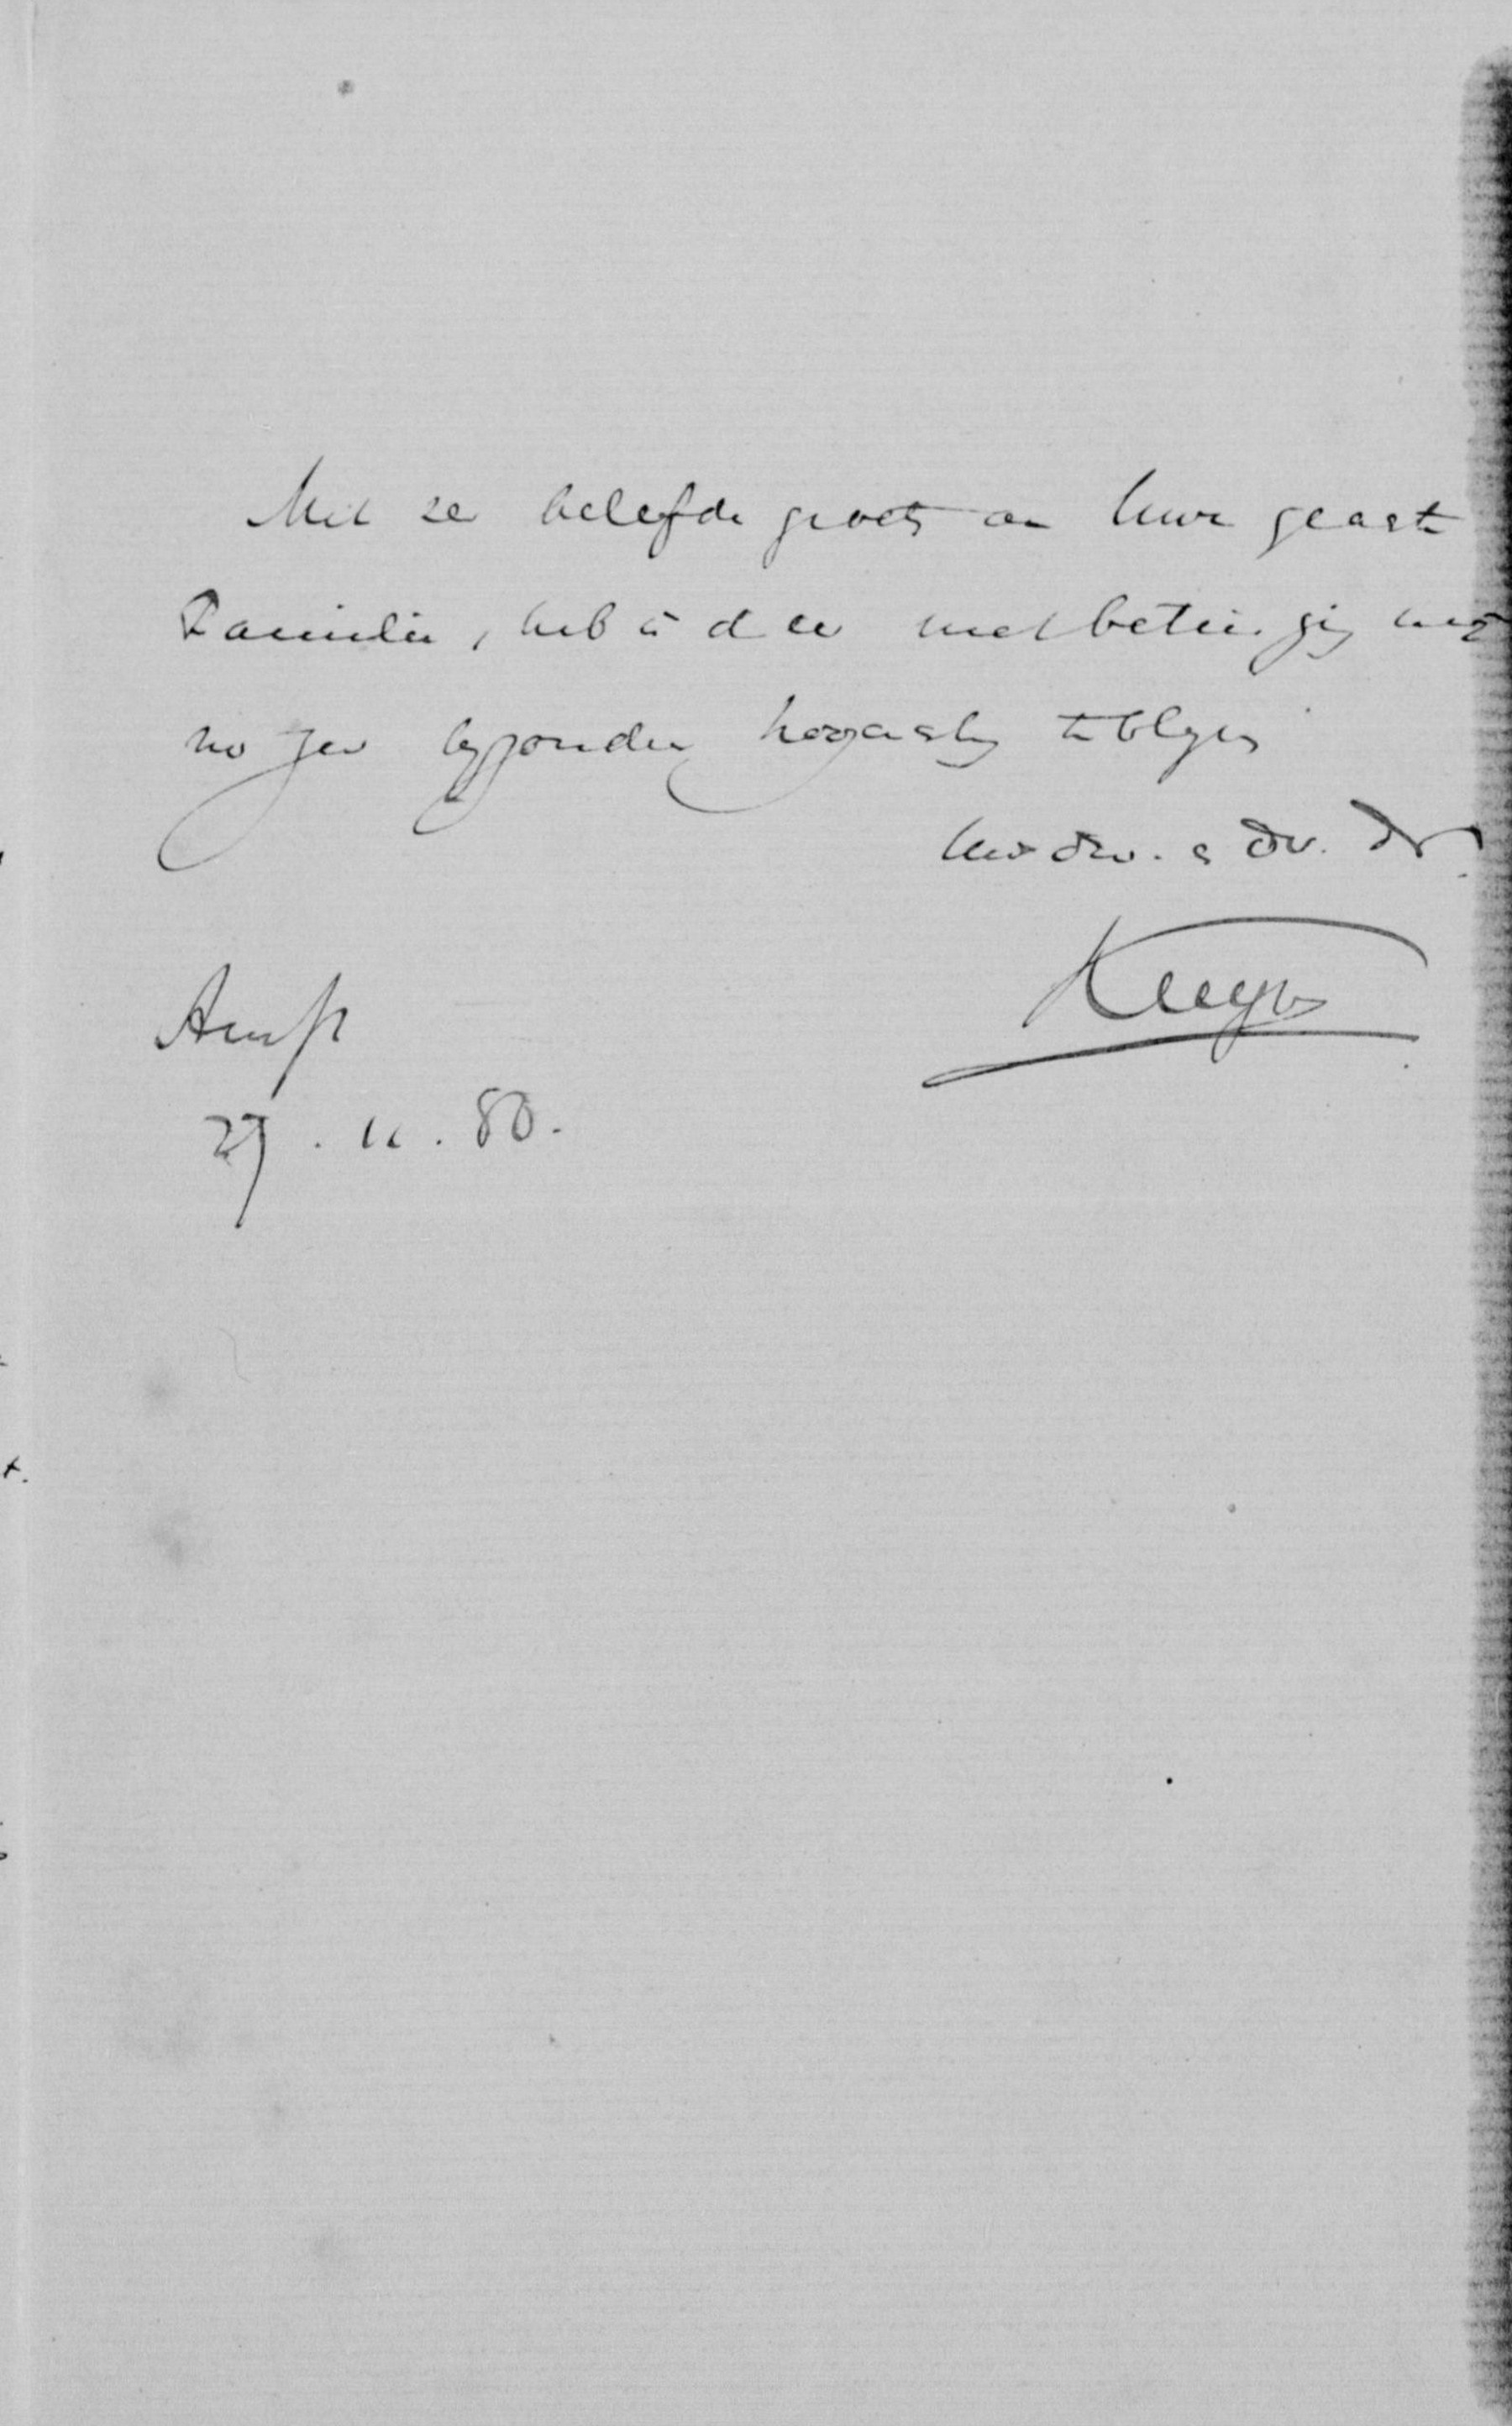 Met ze beleefde groets aan Uwe geacht
Familie, heb ik d eer met betuiging mijn
bijzonder hoogacht te blijven
Uw dw. e Dv. Dr
Kuyper
Amst
27. 11. 80.